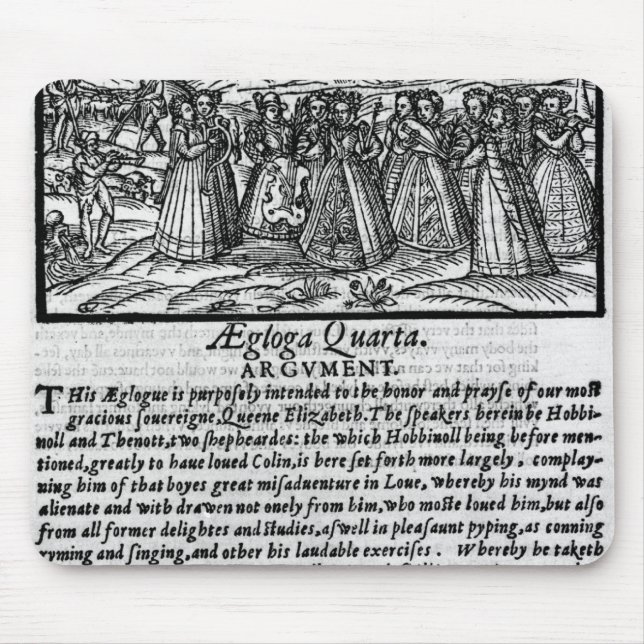 Ægloga Quarta.
ARGVMENT.
THis Æglogue is purpoſely intended to the honor and prayſe of our moſt
gracious ſouereigne, Queene Elizabeth. The ſpeakers herein be Hobbi-
noll and Thenott, two ſhepheardes: the which Hobbinoll being before men-
tioned, greatly to haue loued Colin, is here ſet forth more largely, complay-
ning him of that boyes great miſaduenture in Loue, whereby his mynd was
alienate and with drawen not onely from him, who moſte loued him, but alſo
from all former delightes and ſtudies, aſwell in pleaſaunt pyping, as conning
ryming and ſinging, and other his laudable exerciſes. Whereby he taketh